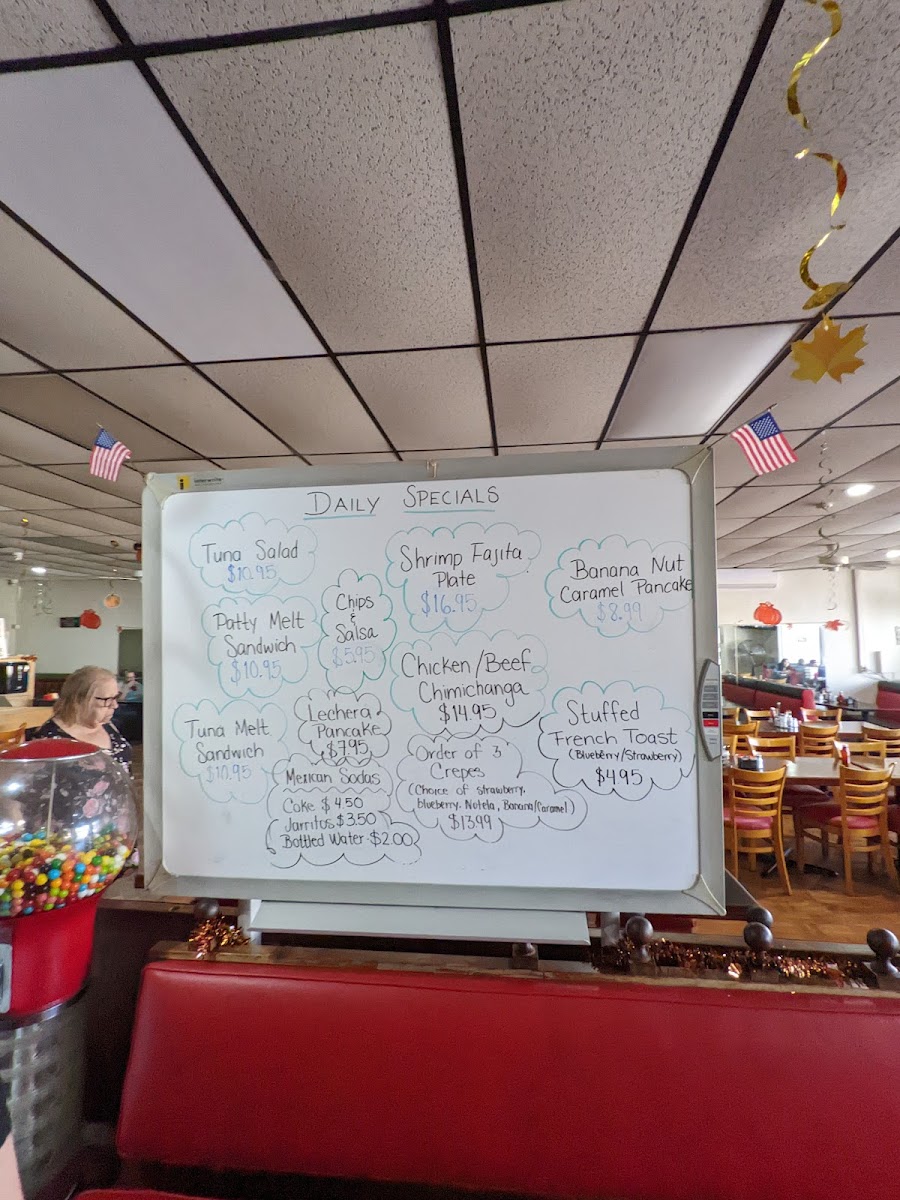 DAILY SPECIALS
Tuna Salad
$10.95
Patty Melt
Sandwich
$10.95
Tuna Melt
Sandwich
$10.95
Chips
&
Salsa
$5.95
Lechera
Pancake
$7.95
Mexican Sodas
Coke $4.50
Jarritos $3.50
Bottled Water $2.00
Shrimp Fajita
Plate
$16.95
Chicken/Beef
Chimichanga
$14.95
Order of 3
Crepes
(Choice of strawberry,
blueberry, Nutela, Banana/Caramel)
$13.99
Banana Nut
Caramel Pancake
$8.99
Stuffed
French Toast
(Blueberry/Strawberry)
$4.95